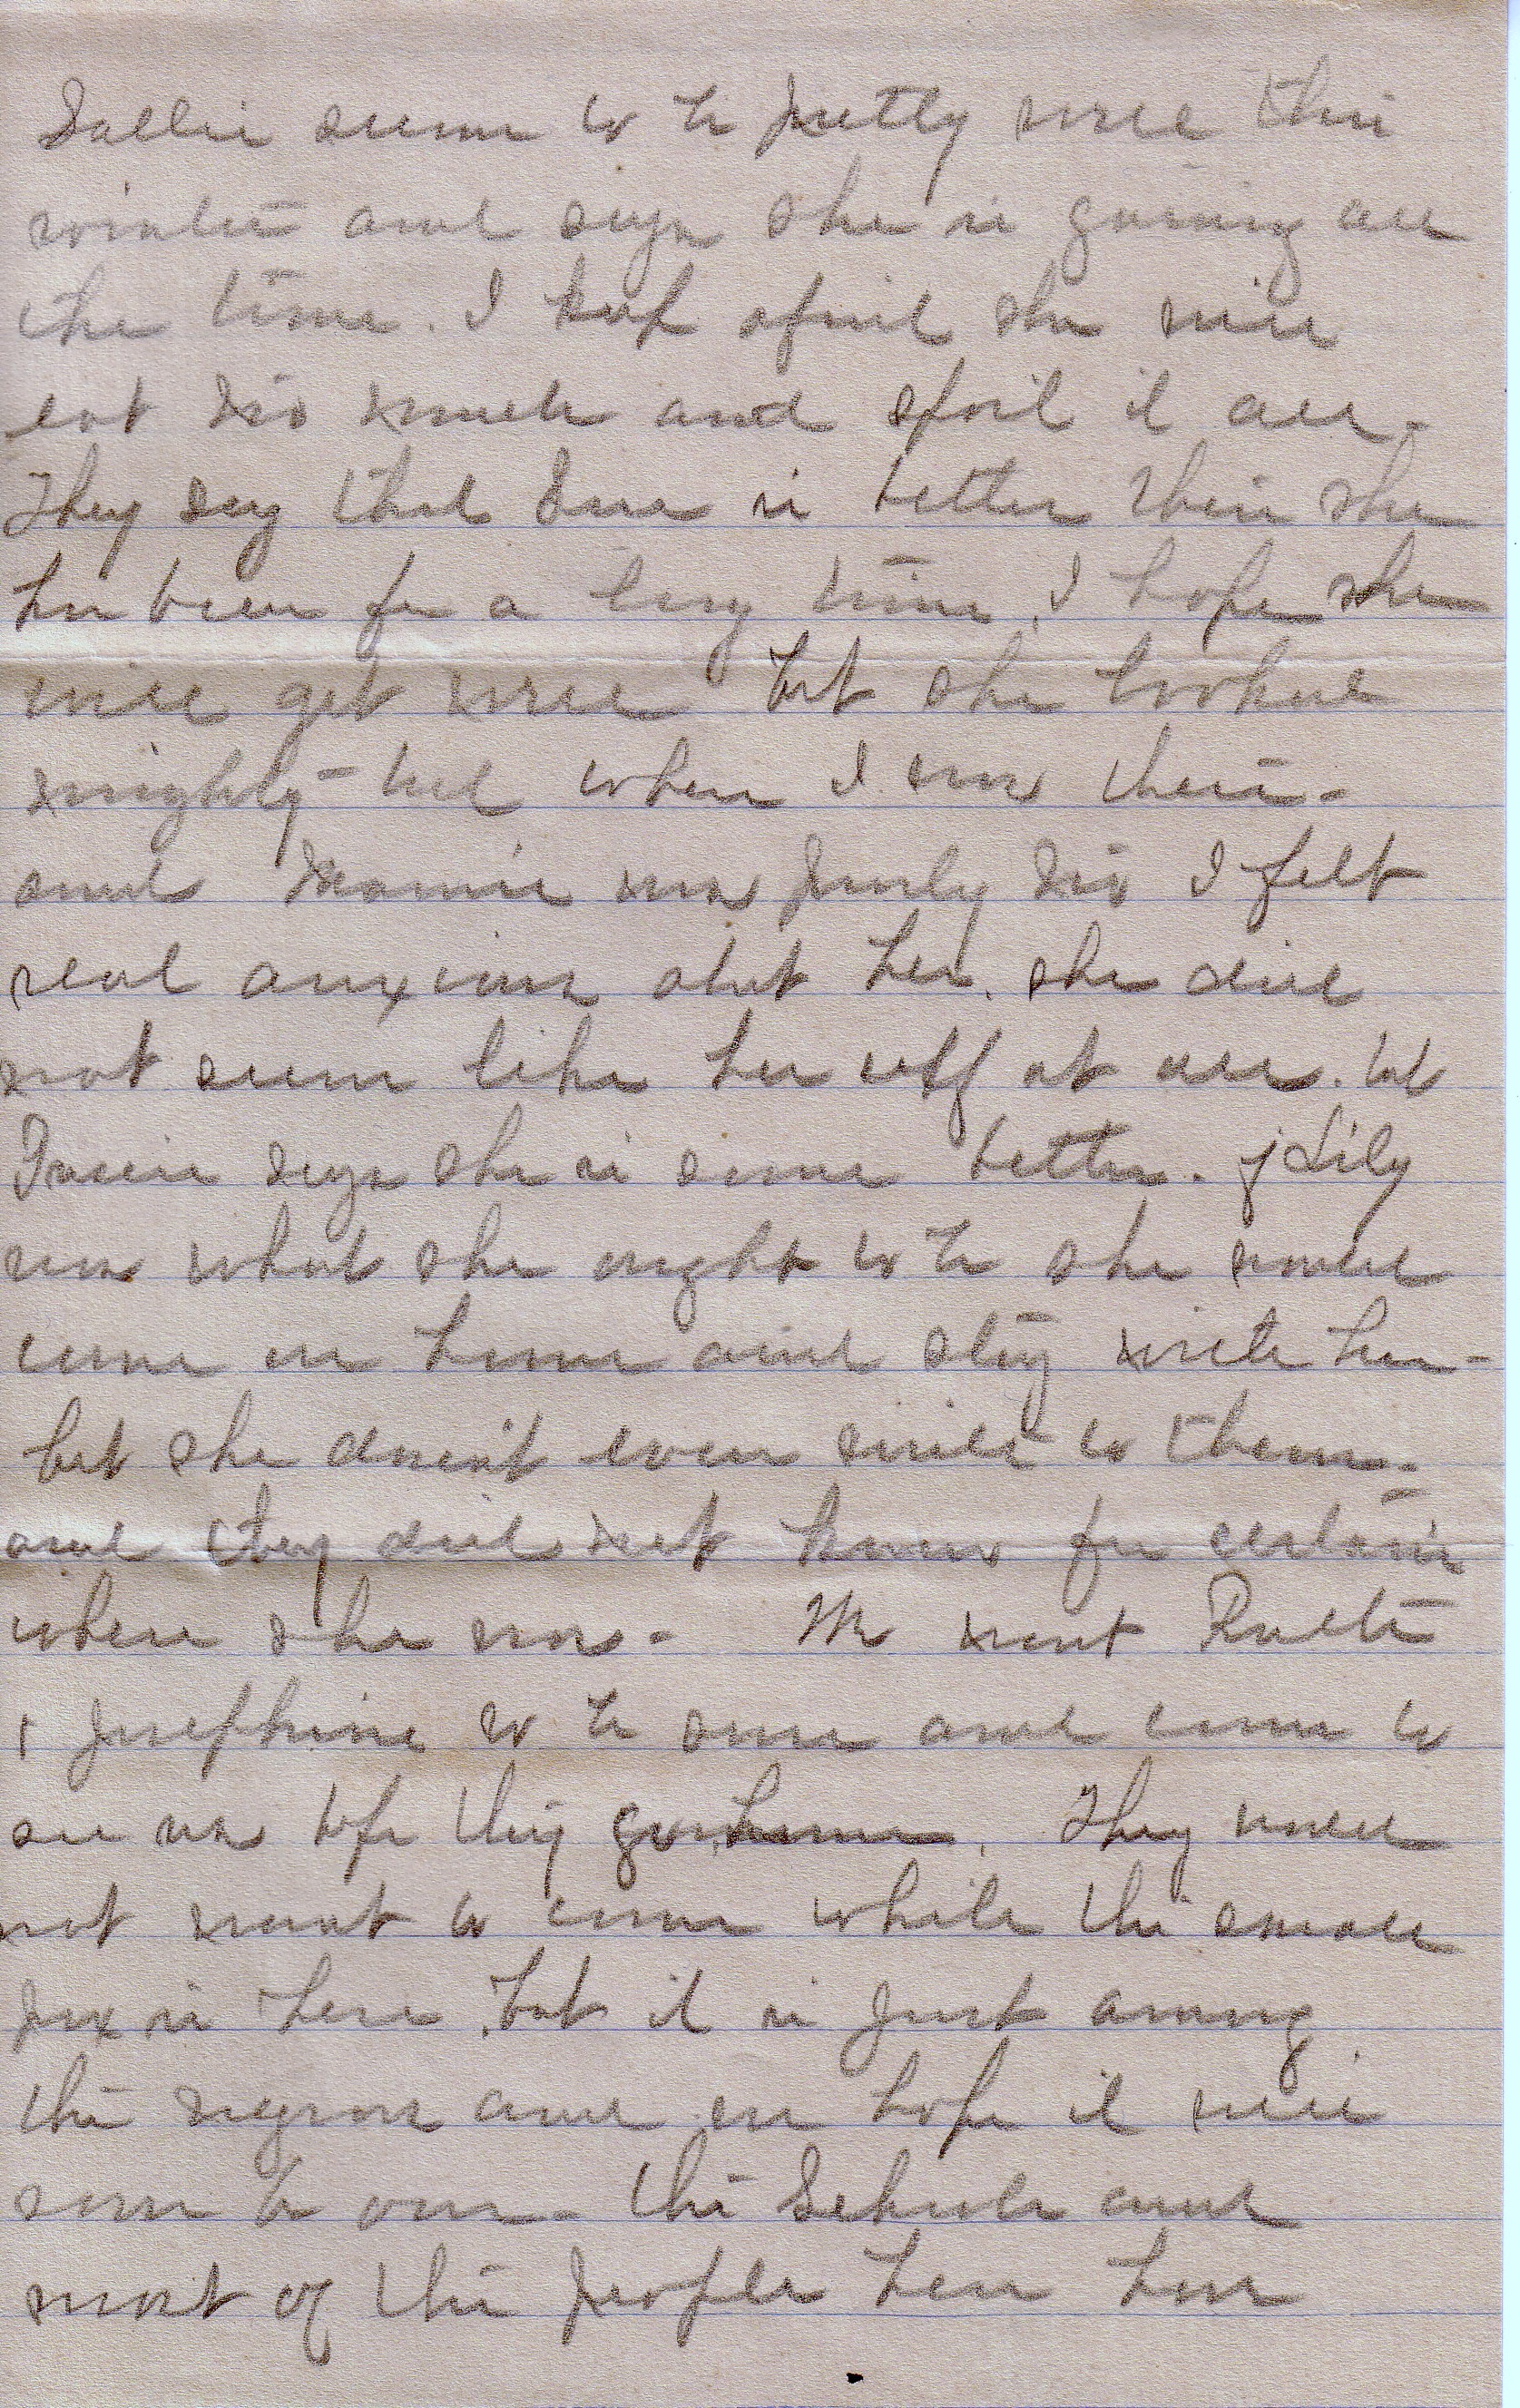 Sallie seems to be pretty well this
winter and says she is gaining all
the time. I keep afraid she will
eat too much and spoil it all.
They say that Sue is better then she
has been for a long time, I hope she
will get well but she looked
mighty bad when I was there -
and Mamie was poorly too I felt
real anxious about her. she did
not seem like her self at all. but
says she is some better. if Lily
was what she ought to be she would
come on home and stay with her -
but she doesn't even write to them -
and they did not know for certain
where she was - We want Ruth
& Josephine to be sure and come to
see us before they go home. They would
not want to come while the small
pox is here, but it is just among
the negroes and we hope it will
soon be over - the Schools and
most of the people here have